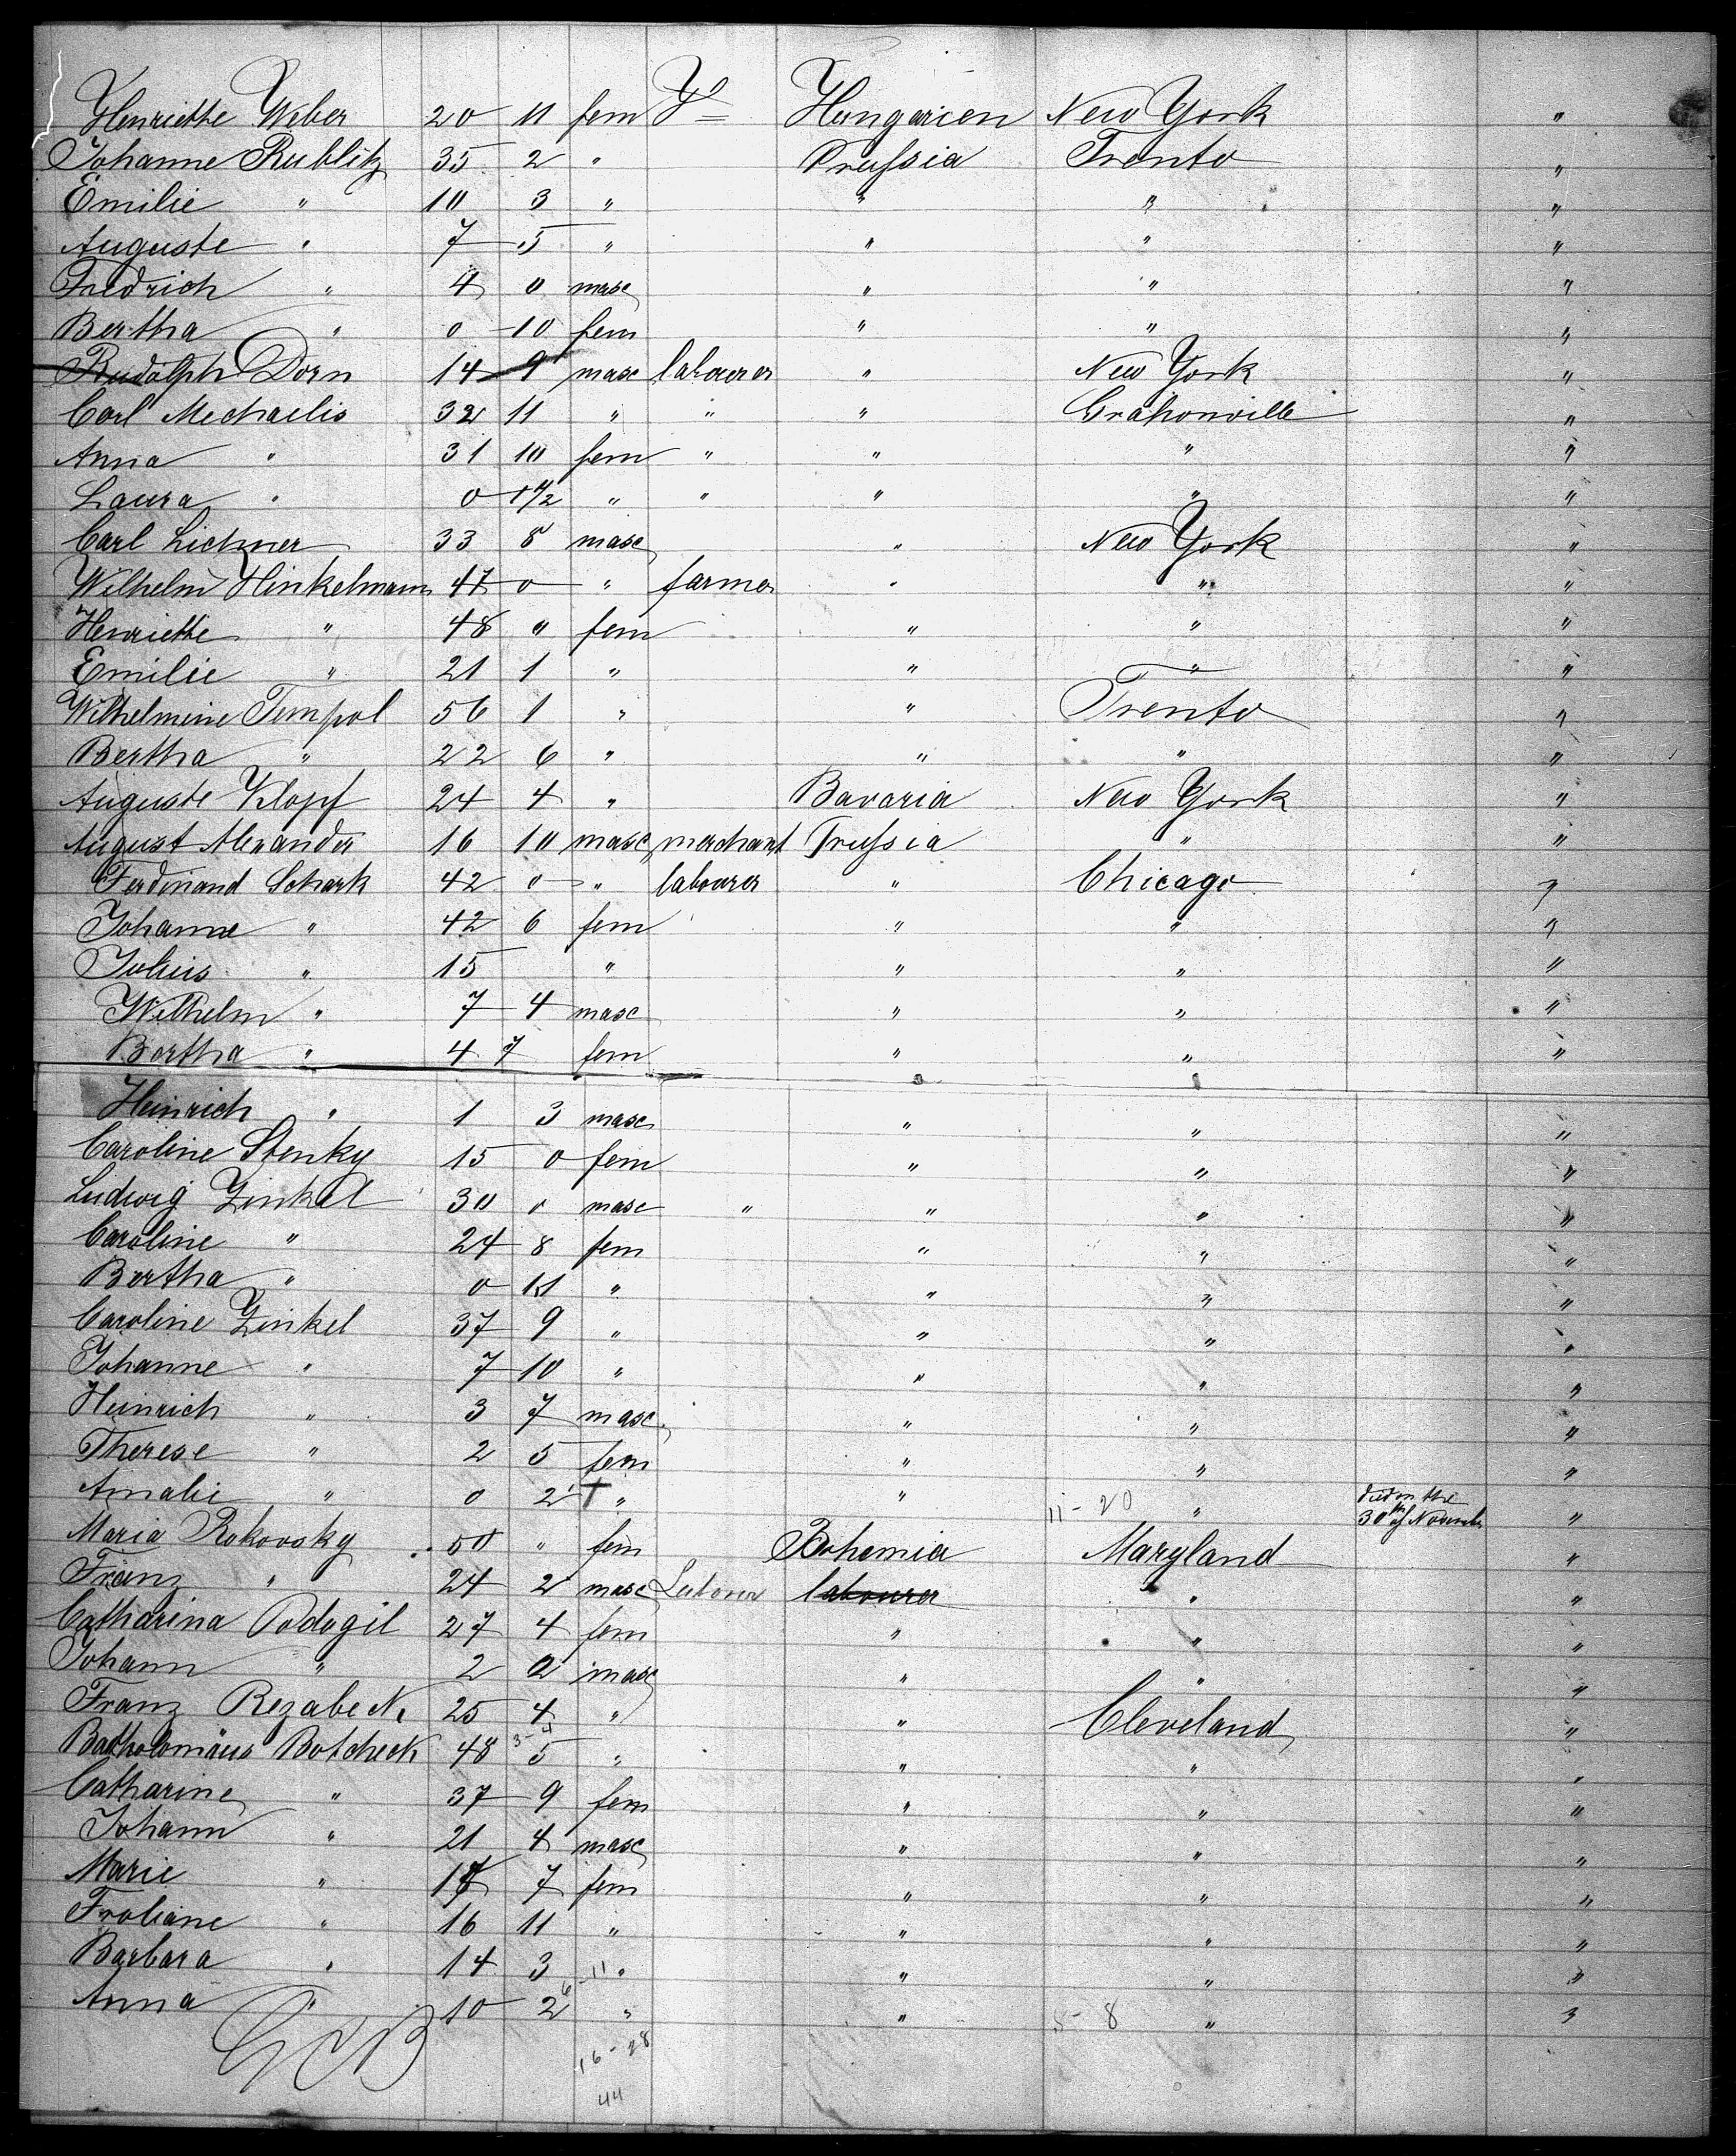 Henriette Weber 20 11 fem Hungarien New York "
Johanne Rublitz 35 2 " Prussia Trento "
Emilie " 10 3 " " " "
Auguste " 7 5 " " " "
Fredrich " 4 0 masc " " "
Bertha " 0 10 fem " " "
Rudolph Dorn 14 9 masc labourer " New York "
Carl Mechaelis 32 11 " " " Grahonville "
Anna " 31 10 fem " " " "
Laura " 0 " " " " "
Carl Lichner 33 8 masc " New York "
Wilhelm Hinkelmann 47 0 " farmer " " "
Henriette " 48 " fem " " "
Emilie " 21 1 " " " "
Wilhelmine Tempol 56 1 " " Trento "
Bertha " 22 6 " " " "
Auguste Klopf 24 4 " Bavaria New York "
August Alexander 16 10 masc merchant Prussia " "
Ferdinand Schark 42 0 " labourer " Chicago "
Johanne " 42 6 fem " " "
Julius " 15 " " " "
Wilhelm " 7 4 masc " " "
Bertha " 4 7 fem " " "
Heinrich " 1 3 masc " " "
Caroline Stenky 15 0 fem " " "
Ludwig Zinkel 30 0 masc " " " "
Caroline " 24 8 fem " " "
Bertha " 0 11 " " " "
Caroline Zinkel 37 9 " " " "
Johanne " 7 10 " " " "
Heinrich " 3 7 masc " " "
Therese " 2 5 fem " " "
Amalie " 0 2 † " " 11-20 " died on the 30th of November "
Maria Rokovsky 50 " fem Bohemia Maryland "
Franz " 24 2 masc Labourer labourer " "
Catharina Podogil 27 4 fem " " "
Johann " 2 2 masc " " "
Franz Rezabeck 25 4 " " Cleveland "
Batholomäus Botcheck 48 5 " " " "
3-4
Catharine " 37 9 fem " " "
Johann " 21 4 masc " " "
Marie " 7 fem " " "
Froliane " 16 11 " " " "
Barbara " 14 3 " " " "
6-11
Anna " 10 2 " " 5-8 " "
16-28
44